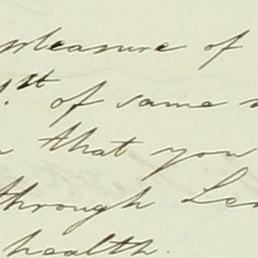 pleasure of
st of same
that you
through
health.